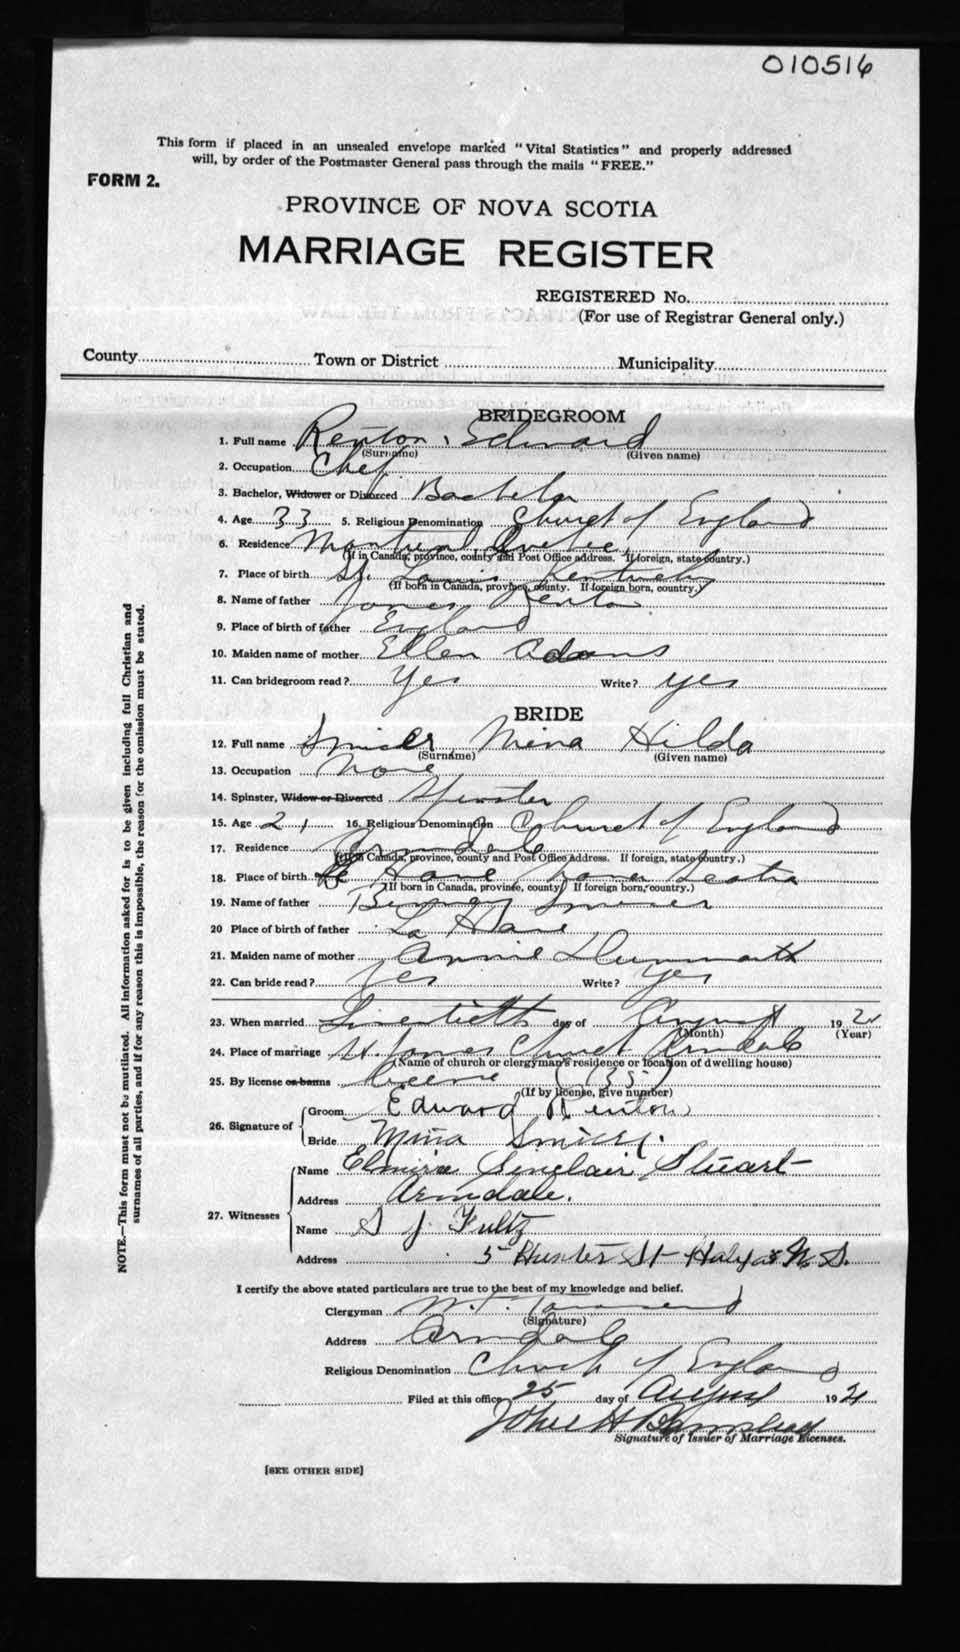 010516
This form if placed in an unsealed envelope marked "Vital Statistics" and properly addressed
will, by order of the Postmaster General pass through the mails "FREE."
FORM 2.
PROVINCE OF NOVA SCOTIA
MARRIAGE REGISTER
REGISTERED No.
(For use of Registrar General only.)
County Town or District Municipality
BRIDEGROOM
1. Full name Renton, Edward
(Surname) (Given name)
2. Occupation Chef
3. Bachelor, Widower or Divorced Bachelor
4. Age 33 5. Religious Denomination Church of England
6. Residence Montreal Quebec
(If in Canada, province, county and Post Office address. If foreign, state country.)
7. Place of birth St. Louis Kentucky
(If born in Canada, province, county. If foreign born, country.)
8. Name of father James Renton
9. Place of birth of father England
10. Maiden name of mother Ellen Adams
11. Can bridegroom read? Yes Write? yes
BRIDE
12. Full name Mina Hilda
(Surname) (Given name)
13. Occupation None
14. Spinster, Widow or Divorced Spinster
15. Age 21 16. Religious Denomination Church of England
17. Residence Armdale
(If in Canada, province, county and Post Office address. If foreign, state country.)
18. Place of birth Have Nova Scotia
(If born in Canada, province, county If foreign born, country.)
19. Name of father
20 Place of birth of father La Have
21. Maiden name of mother Annie
22. Can bride read? Yes Write? Yes
23. When married day of August 192
(Month) (Year)
24. Place of marriage St. James Church Armdale
(Name of church or clergyman's residence or location of dwelling house)
25. By license or banns
(If by license, give number)
26. Signature of
Groom Edward Renton
Bride Mina
27. Witnesses
Name Elmira Sinclair Stuart
Address Armdale.
Name S J Fultz
Address 5 Hunter St Halifax N. S.
I certify the above stated particulars are true to the best of my knowledge and belief.
Clergyman W. J. Townsend
(Signature)
Address Armdale
Religious Denomination Church of England
Filed at this office 25 day of August 192
John H Barnstead
Signature of Issuer of Marriage Licenses.
[SEE OTHER SIDE]
NOTE.—This form must not be mutilated. All information asked for is to be given including full Christian and
surnames of all parties, and if for any reason this is impossible, the reason for the omission must be stated.